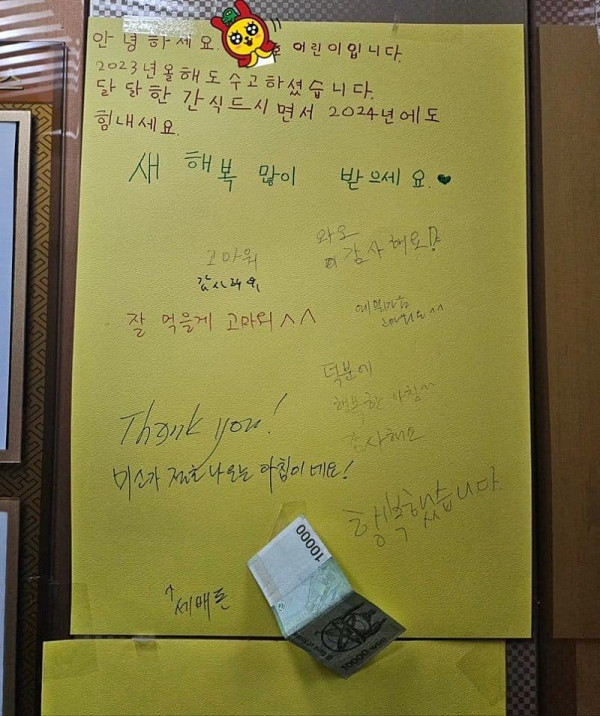 안녕하세요. 어린이입니다.
2023년 올해도 수고하셨습니다.
달달한 간식드시면서 2024년에도
힘내세요.
새 해복 많이 받으세요.♥
고마워
와우
감사해요!
잘 먹을게 고마워^^
덕분에
행복한 아침^^
감사해요
Thank you!
미소가 절로 나오는 아침이네요!
행복했습니다.
↑세배돈
10000
10000 won